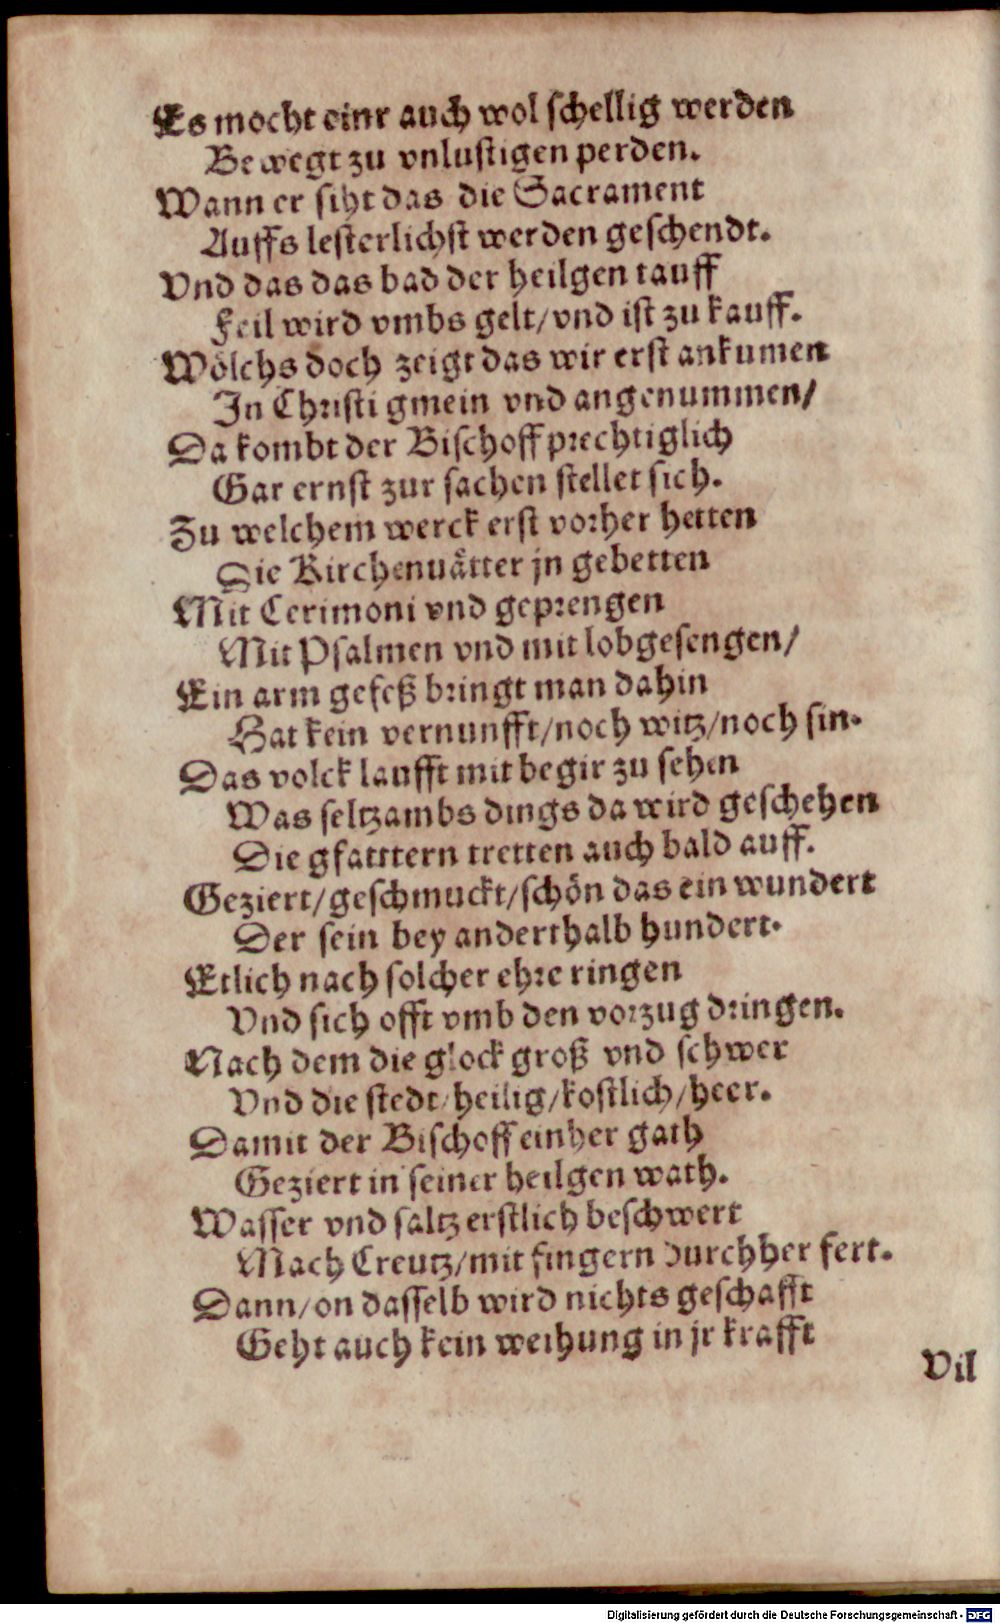 Es mocht einr auch wol schellig werden
Bewegt zu vnlustigen perden.
Wann er siht das die Sacrament
Auffs lesterlichst werden geschendt.
Vnd das das bad der heilgen tauff
Feil wird vmbs gelt/vnd ist zu kauff.
Wölchs doch zeigt das wir erst ankumen
In Christi gmein vnd angenummen/
Da kombt der Bischoff prechtiglich
Gar ernst zur sachen stellet sich.
Zu welchem werck erst vorher hetten
Die Kirchenuätter jn gebetten
Mit Cerimoni vnd geprengen
Mit Psalmen vnd mit lobgesengen/
Ein arm gefeß bringt man dahin
Hat kein vernunfft/noch witz/noch sin.
Das volck laufft mit begir zu sehen
Was seltzambs dings da wird geschehen
Die gfatttern tretten auch bald auff.
Geziert/geschmuckt/schön das ein wundert
Der sein bey anderthalb hundert.
Etlich nach solcher ehre ringen
Vnd sich offt vmb den vorzug dringen.
Nach dem die glock groß vnd schwer
Vnd die stedt/heilig/kostlich/heer.
Damit der Bischoff einher gath
Geziert in seiner heilgen wath.
Wasser vnd saltz erstlich beschwert
Mach Creutz/mit fingern durchher fert.
Dann/on dasselb wird nichts geschafft
Geht auch kein weihung in jr krafft
Vil
Digitalisierung gefördert durch die Deutsche Forschungsgemeinschaft - DFG